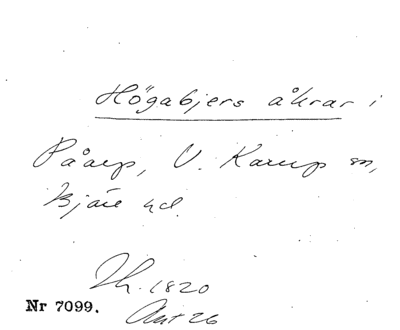 Högabjers åkrar i
Påarp, V. Karup sn,
Bjäre hd.
Lh. 1820
Nr 7099.
Ant 26